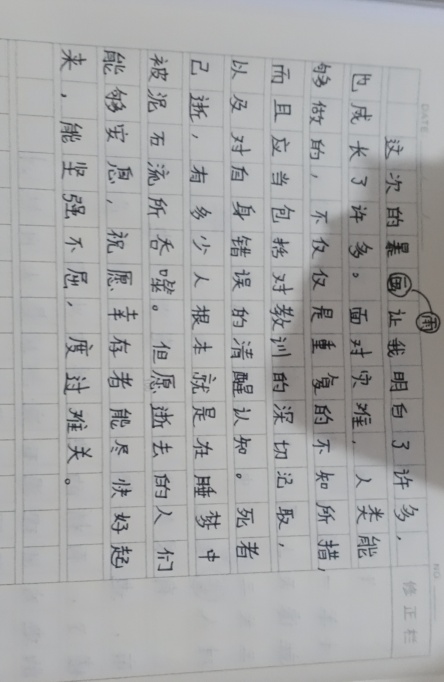 DATE
NO
修正栏
雨
这次的暴让我明白了许多，
也成长了许多。面对灾难，人类能
够做的，不仅仅是重复的不知所措，
而且应当包括对教训的深切记取，
以及对自身错误的清醒认知。死者
已逝，有多少人根本就是在睡梦中
被泥石流所吞噬。但愿逝去的人们
能够安息，祝愿幸存者能尽快好起
来，能坚强不屈，度过难关。